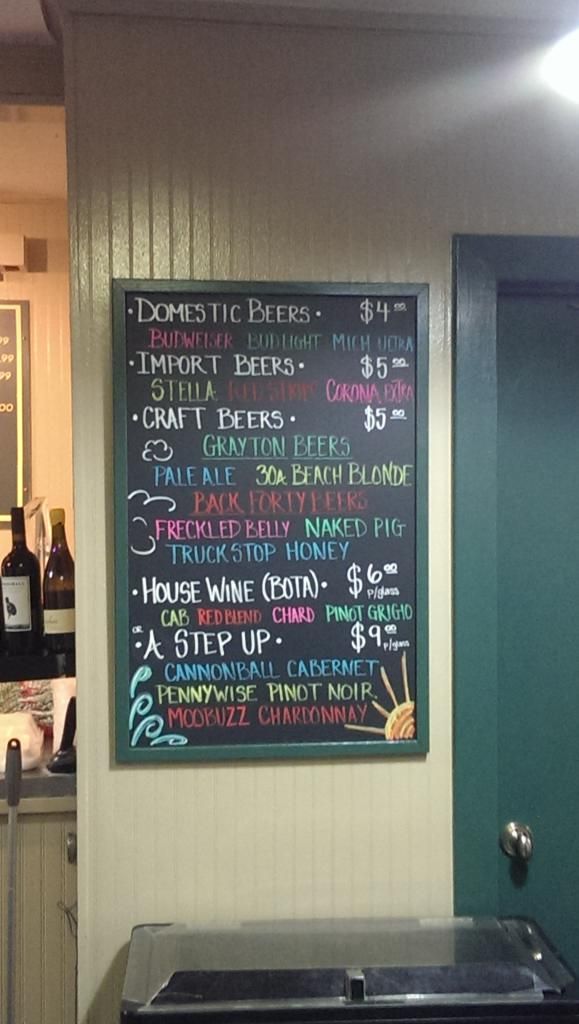 • DOMESTIC BEERS • $4.00
BUDWEISER BUD LIGHT MICH ULTRA
• IMPORT BEERS • $5.00
STELLA RED STRIPE CORONA EXTRA
• CRAFT BEERS • $5.00
GRAYTON BEERS
PALE ALE 30A BEACH BLONDE
BACK FORTY BEERS
FRECKLED BELLY NAKED PIG
TRUCKSTOP HONEY
• HOUSE WINE (BOTA) • $6.00 P/glass
CAB RED BLEND CHARD PINOT GRIGIO
OR
• A STEP UP • $9.00 P/glass
CANNONBALL CABERNET
PENNYWISE PINOT NOIR
MOOBUZZ CHARDONNAY